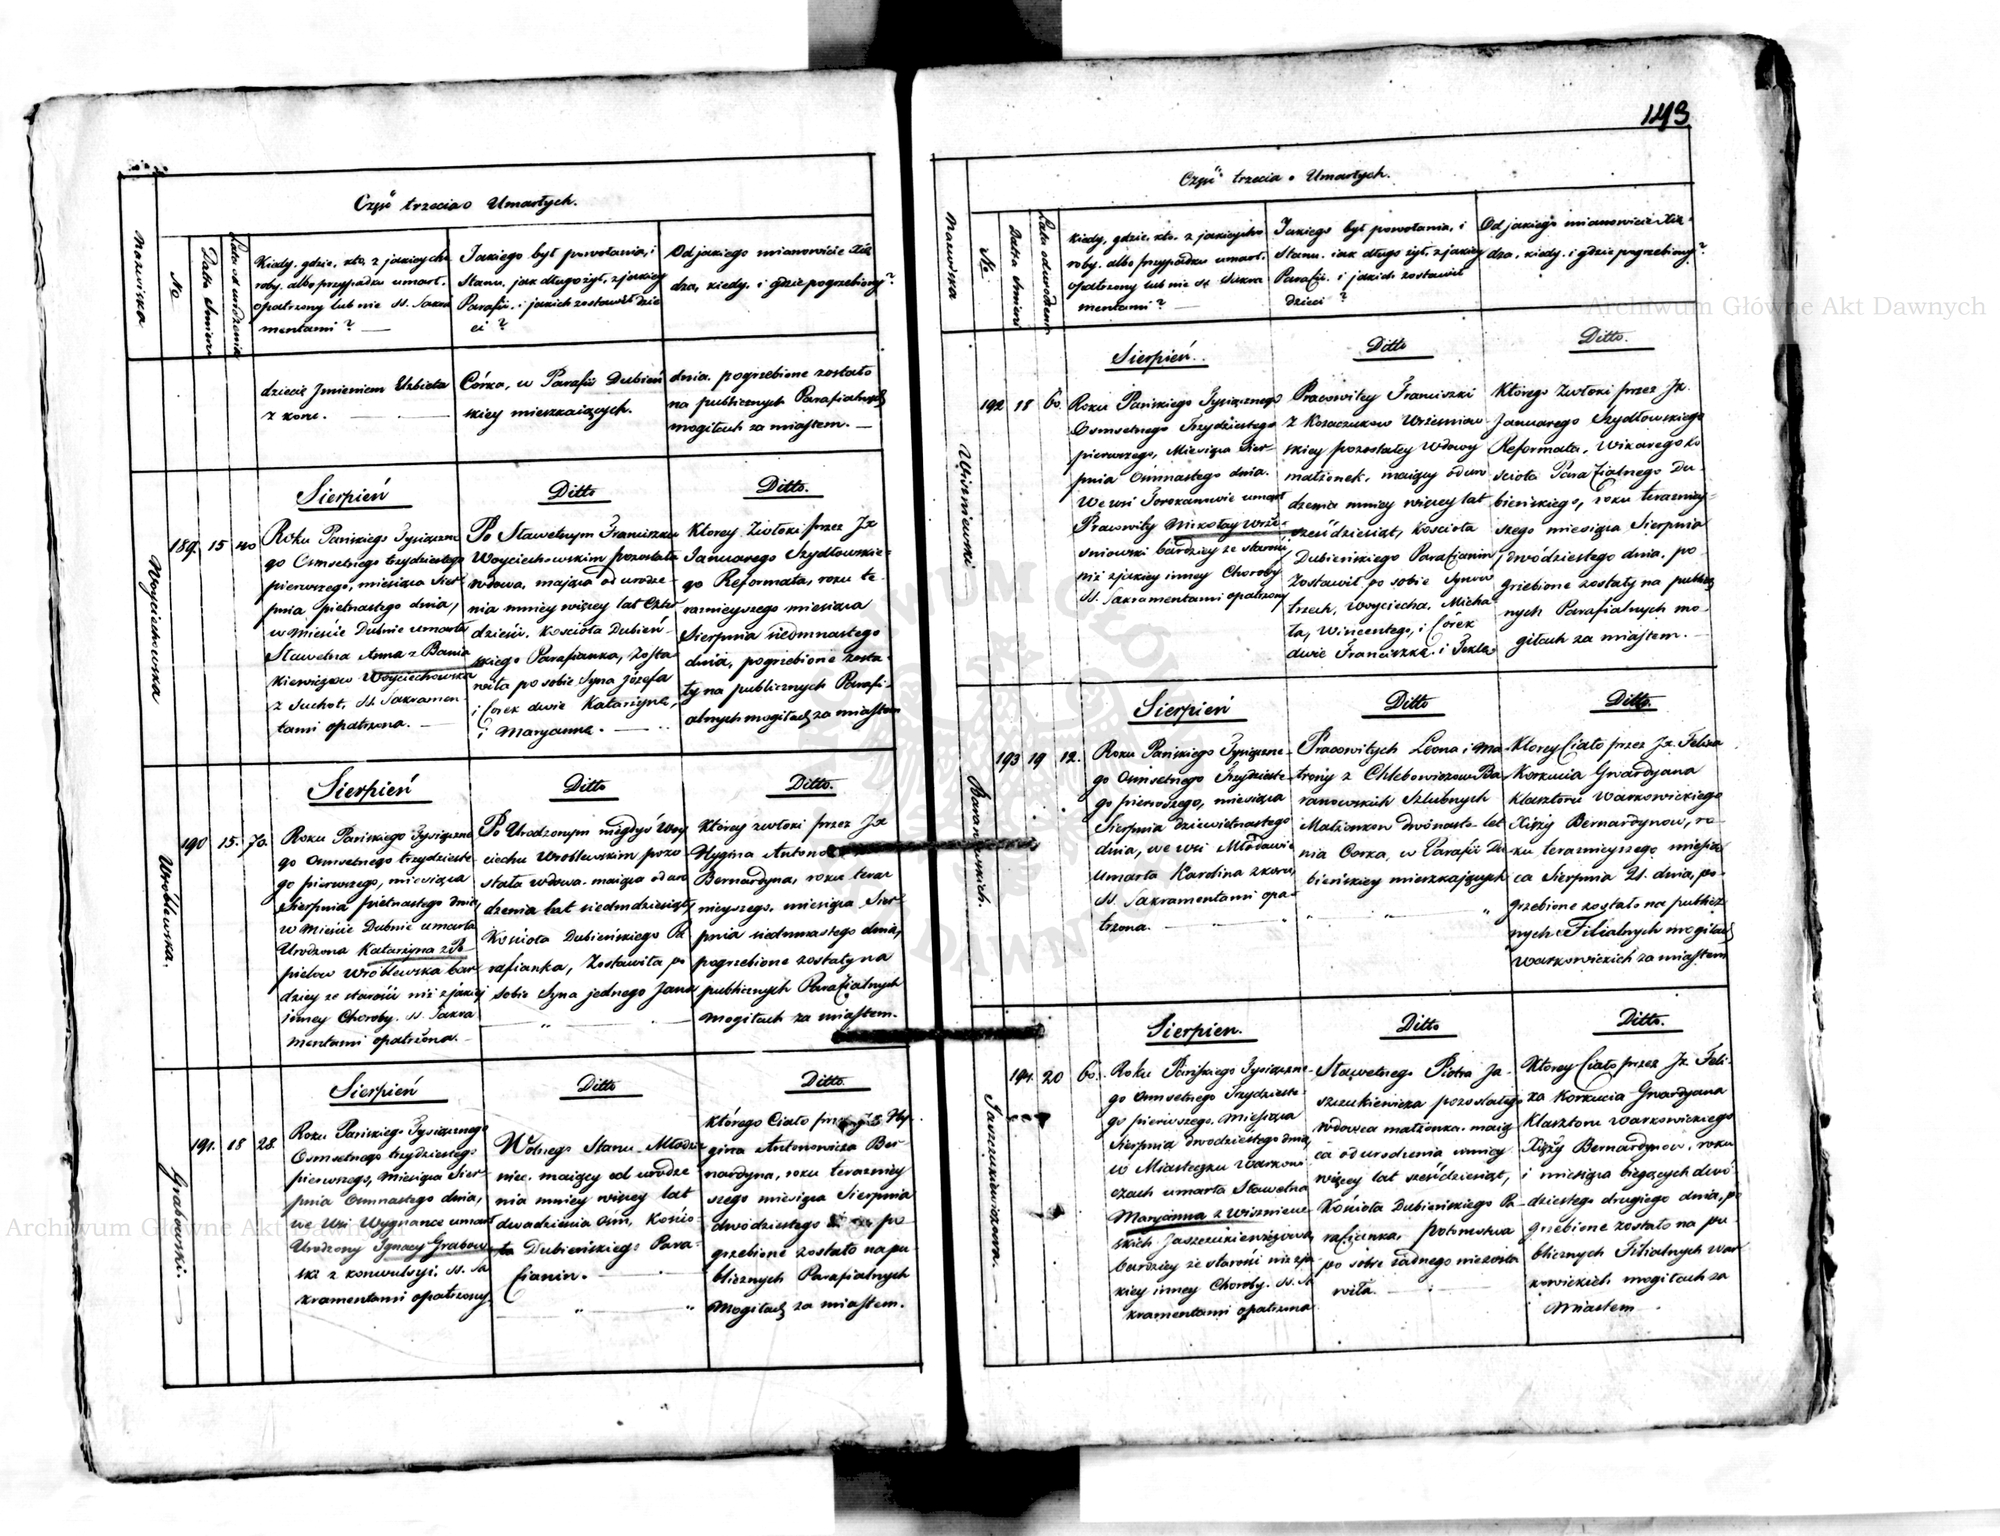 Część trzecia o Umarłych.
Nazwiska
No
Datta Śmierci
Lata od urodzenia
Kiedy, gdzie, kto, z jakiey cho
roby, albo przypadku umarł,
opatrzony lub nie SS. Sakra
mentami?
Jakiego był powołania, i
Stanu, jak długo żył, z jakiey
Parafii, i jakich zostawił dzie
ci?
Od jakiego mianowicie Xię
dza, kiedy, i gdzie pogrzebiony?
dziecię Jmieniem Elżbieta
z konw.
Córka, w Parafii Dubień
skiey mieszkaiących.
dnia, pogrzebione zostało
na publicznych Parafialnych
mogiłach za miastem.
Woyciechowska
189. 15 40
Sierpień
Roku Pańskiego Tysiączne
go Osmsetnego trzydziestego
pierwszego, miesiąca Sier
pnia pietnastego dnia,
w mieście Dubnie umarła
Sławetna Anna z Bania
kiewiczow Woyciechowska
z Suchot, SS. Sakramen
tami opatrzona.
Ditto
Po Sławetnym Franciszku
Woyciechowskim pozostała
wdowa, mająca od urodze
nia mniey więcey lat Czter
dzieści, Kościoła Dubień
skiego Parafianka, zosta
wiła po sobie Syna Józefa
i Córek dwie Katarzynę,
i Maryannę.
Ditto.
Ktorey Zwłoki przez JX
Januarego Szydłowskie
go Reformata, roku te
raznieyszego miesiąca
Sierpnia siedmnastego
dnia, pogrzebione zosta
ły na publicznych Parafi
alnych mogiłach za miastem
Wróblewska.
190 15. 70.
Sierpień
Roku Pańskiego Tysiączne
go Osmsetnego trzydzieste
go pierwszego, miesiąca
Sierpnia pietnastego dnia,
w Mieście Dubnie umarła
Urodzona Katarzyna z Po
pielow Wróblewska bar
dziey ze starości niż z jakiey
inney Choroby, SS. Sakra
mentami opatrzona.
Ditto
Po Urodzonym niegdyś Woy
ciechu Wróblewskim pozo
stała wdowa, maiąca od uro
dzenia lat siedmdziesiąt,
Kościoła Dubieńskiego Pa
rafianka, Zostawiła po
sobie Syna jednego Jana
Ditto.
Którey zwłoki przez JX
Hygina Antono
Bernardyna, roku teraz
nieyszego, miesiąca Sier
pnia siedmnastego dnia,
pogrzebione zostały na
publicznych Parafialnych
mogiłach za miastem.
Grabowski.
191. 18 28.
Sierpień
Roku Pańskiego Tysiącznego
Osmsetnego trzydziestego
pierwszego, miesiąca Sier
pnia Osmnastego dnia,
we Wsi Wygnance umarł
Urodzony Ignacy Grabow
ski z konwulsyi, SS. Sa
kramentami opatrzony
Ditto
Wolnego Stanu Młodzie
niec, maiący od urodze
nia mniey więcey lat
dwadzieścia osm, Kościo
ła Dubieńskiego Para
fianin.
Ditto.
którego Ciało przez JX Hy
gina Antonowicza Ber
nardyna, roku terazniey
szego miesiąca Sierpnia
dwódziestego po
grzebione zostało na pu
blicznych Parafialnych
Mogiłach za miastem.
143
Część trzecia o Umarłych.
Nazwiska
No.
Datta Śmierci
Lata od urodzenia
Kiedy, gdzie, kto, z jakiey cho
roby, albo przypadku umarł,
opatrzony lub nie SS. Sakra
mentami?
Jakiego był powołania, i
Stanu, iak długo żył, z jakiey
Parafii, i jakich zostawił
dzieci?
Od jakiego mianowicie Xię
dza, kiedy, i gdzie pogrzebiony?
Wiśniewski
192 18 60.
Sierpień.
Roku Pańskiego Tysiącznego
Osmsetnego Trzydziestego
pierwszego, Miesiąca Sier
pnia Osmnastego dnia.
We wsi umarł
Pracowity Mikołay Wrze
śniowski bardziey ze starości
niż z jakiey inney Choroby
SS. Sakramentami opatrzony
Ditto
Pracowitey Franciszki
z Kozaczukow Wrześniow
skiey pozostałey Wdowy
małżonek, maiący od uro
dzenia mniey więcey lat
sześćdziesiąt, Kościoła
Dubieńskiego Parafianin,
Zostawił po sobie Synow
trzech, Woyciecha, Micha
ła, Wincentego, i Córek
dwie Franciszkę i Teklę
Ditto.
Którego Zwłoki przez JX.
Januarego Szydłowskiego
Reformata, Wikarego Ko
ścioła Parafialnego Du
bieńskiego, roku terazniey
szego miesiąca Sierpnia
dwódziestego dnia, po
grzebione zostały na publicz
nych Parafialnych mo
giłach za miastem.
Baranowskich.
193 19 12.
Sierpień
Roku Pańskiego Tysiączne
go Osmsetnego Trzydzieste
go pierwszego, miesiąca
Sierpnia dziewiętnastego
dnia, we wsi Młodawie
Umarła Karolina z konw,
SS. Sakramentami opa
trzona.
Ditto
Pracowitych Leona i Ma
trony z Chlebowiczow Ba
ranowskich Szlubnych
Małżonkow dwónasto let
nia Corka, w Parafii Du
bieńskiey mieszkających
Ditto.
Ktorey Ciało przez JX. Felixa
Korkucia Gwardyana
Klasztoru Warkowickiego
Xięży Bernardynow, ro
ku teraznieyszego miesią
ca Sierpnia 21. dnia, po
grzebione zostało na publicz
nych Filialnych mogiłach
Warkowickich za miastem
Jaszczukiewiczowa.
194. 20 60.
Sierpien.
Roku Pańskiego Tysiączne
go Osmsetnego Trzydzieste
go pierwszego, Miesiąca
Sierpnia dwodziestego dnia,
w Miasteczku Warkowi
czach umarła Sławetna
Maryanna z Wiszniew
skich Jaszczukiewiczowa
bardziey ze starości niż z ja
kiey inney Choroby, SS. Sa
kramentami opatrzona
Ditto
Sławetnego Piotra Ja
szczukiewicza pozostałego
wdowca małżonka, maią
ca od urodzenia mniey
więcey lat sześćdziesiąt,
Kościoła Dubieńskiego Pa
rafianka, Potomstwa
po sobie żadnego niezosta
wiła.
Ditto.
Ktorey Ciało przez JX. Feli
xa Korkucia Gwardyana
Klasztoru Warkowickiego
Xięży Bernardynow, roku
i miesiąca bieżących dwó
dziestego drugiego dnia, po
grzebione zostało na pu
blicznych Filialnych War
kowickich mogiłach za
Miastem
Archiwum Główne Akt Dawnych
Archiwum Główne Akt Dawnych